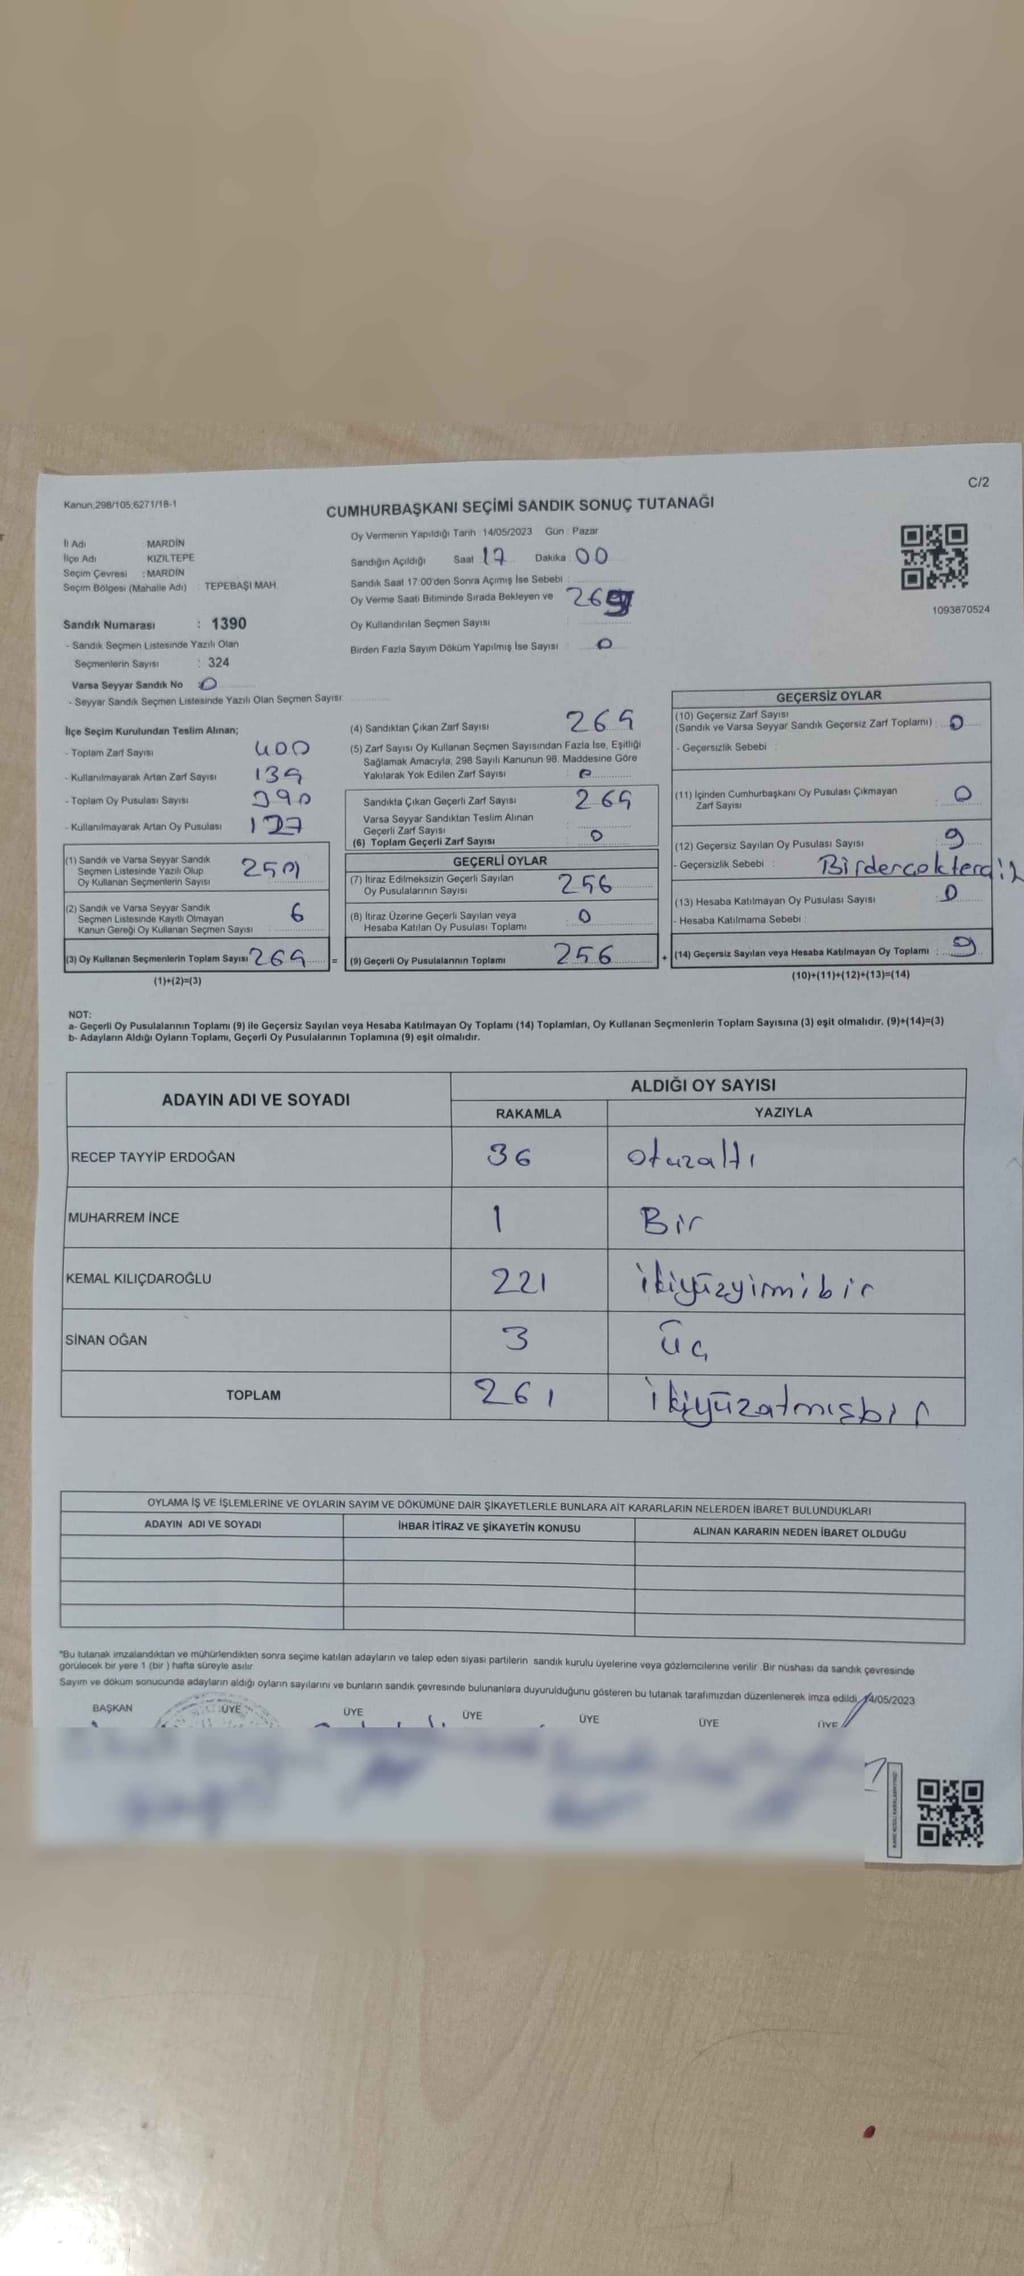 C/2
Kanun,298/105;6271/18-1
CUMHURBAŞKANI SEÇİMİ SANDIK SONUÇ TUTANAĞI
İl Adı MARDİN
İlçe Adı KIZILTEPE
Seçim Çevresi : MARDİN
Seçim Bölgesi (Mahalle Adı) : TEPEBAŞI MAH.
Sandık Numarası : 1390
- Sandık Seçmen Listesinde Yazılı Olan
Seçmenlerin Sayısı : 324
Varsa Seyyar Sandık No : 0
- Seyyar Sandık Seçmen Listesinde Yazılı Olan Seçmen Sayısı:
Oy Vermenin Yapıldığı Tarih 14/05/2023 Gün : Pazar
Sandığın Açıldığı Saat 17 Dakika 00
Sandık Saat 17:00'den Sonra Açımış İse Sebebi :
Oy Verme Saati Bitiminde Sırada Bekleyen ve
Oy Kullandırılan Seçmen Sayısı
Birden Fazla Sayım Döküm Yapılmış İse Sayısı : 0
1093870524
İlçe Seçim Kurulundan Teslim Alınan;
- Toplam Zarf Sayısı 400
- Kullanılmayarak Artan Zarf Sayısı 139
- Toplam Oy Pusulası Sayısı 390
- Kullanılmayarak Artan Oy Pusulası 127
(1) Sandık ve Varsa Seyyar Sandık
Seçmen Listesinde Yazılı Olup
Oy Kullanan Seçmenlerin Sayısı
(2) Sandık ve Varsa Seyyar Sandık
Seçmen Listesinde Kayıtlı Olmayan
Kanun Gereği Oy Kullanan Seçmen Sayısı 6
(3) Oy Kullanan Seçmenlerin Toplam Sayısı 269 =
(1)+(2)=(3)
(4) Sandıktan Çıkan Zarf Sayısı 269
(5) Zarf Sayısı Oy Kullanan Seçmen Sayısından Fazla İse, Eşitliği
Sağlamak Amacıyla, 298 Sayılı Kanunun 98. Maddesine Göre
Yakılarak Yok Edilen Zarf Sayısı : 0
Sandıkta Çıkan Geçerli Zarf Sayısı 269
Varsa Seyyar Sandıktan Teslim Alınan
Geçerli Zarf Sayısı
(6) Toplam Geçerli Zarf Sayısı 0
GEÇERLİ OYLAR
(7) İtiraz Edilmeksizin Geçerli Sayılan
Oy Pusulalarının Sayısı 256
(8) İtiraz Üzerine Geçerli Sayılan veya
Hesaba Katılan Oy Pusulası Toplamı 0
(9) Geçerli Oy Pusulalarının Toplamı 256 +
GEÇERSİZ OYLAR
(10) Geçersiz Zarf Sayısı
(Sandık ve Varsa Seyyar Sandık Geçersiz Zarf Toplamı) : 0
- Geçersizlik Sebebi :
(11) İçinden Cumhurbaşkanı Oy Pusulası Çıkmayan
Zarf Sayısı : 0
(12) Geçersiz Sayılan Oy Pusulası Sayısı 9
- Geçersizlik Sebebi :
(13) Hesaba Katılmayan Oy Pusulası Sayısı : 0
- Hesaba Katılmama Sebebi :
(14) Geçersiz Sayılan veya Hesaba Katılmayan Oy Toplamı : 9
(10)+(11)+(12)+(13)=(14)
NOT:
a- Geçerli Oy Pusulalarının Toplamı (9) ile Geçersiz Sayılan veya Hesaba Katılmayan Oy Toplamı (14) Toplamları, Oy Kullanan Seçmenlerin Toplam Sayısına (3) eşit olmalıdır. (9)+(14)=(3)
b- Adayların Aldığı Oyların Toplamı, Geçerli Oy Pusulalarının Toplamına (9) eşit olmalıdır.
ADAYIN ADI VE SOYADI ALDIĞI OY SAYISI
RAKAMLA YAZIYLA
RECEP TAYYİP ERDOĞAN 36 otuzaltı
MUHARREM İNCE 1 Bir
KEMAL KILIÇDAROĞLU 221 ikiyüzyirmibir
SİNAN OĞAN 3 üç
TOPLAM 261 ikiyüzatmışbir
OYLAMA İŞ VE İŞLEMLERİNE VE OYLARIN SAYIM VE DÖKÜMÜNE DAİR ŞİKAYETLERLE BUNLARA AİT KARARLARIN NELERDEN İBARET BULUNDUKLARI
ADAYIN ADI VE SOYADI İHBAR İTİRAZ VE ŞİKAYETİN KONUSU ALINAN KARARIN NEDEN İBARET OLDUĞU
"Bu tutanak imzalandıktan ve mühürlendikten sonra seçime katılan adayların ve talep eden siyasi partilerin sandık kurulu üyelerine veya gözlemcilerine verilir. Bir nüshası da sandık çevresinde
görülecek bir yere 1 (bir ) hafta süreyle asılır
Sayım ve döküm sonucunda adayların aldığı oyların sayılarını ve bunların sandık çevresinde bulunanlara duyurulduğunu gösteren bu tutanak tarafımızdan düzenlenerek imza edildi. 14/05/2023
BAŞKAN ÜYE ÜYE ÜYE ÜYE ÜYE ÜYE